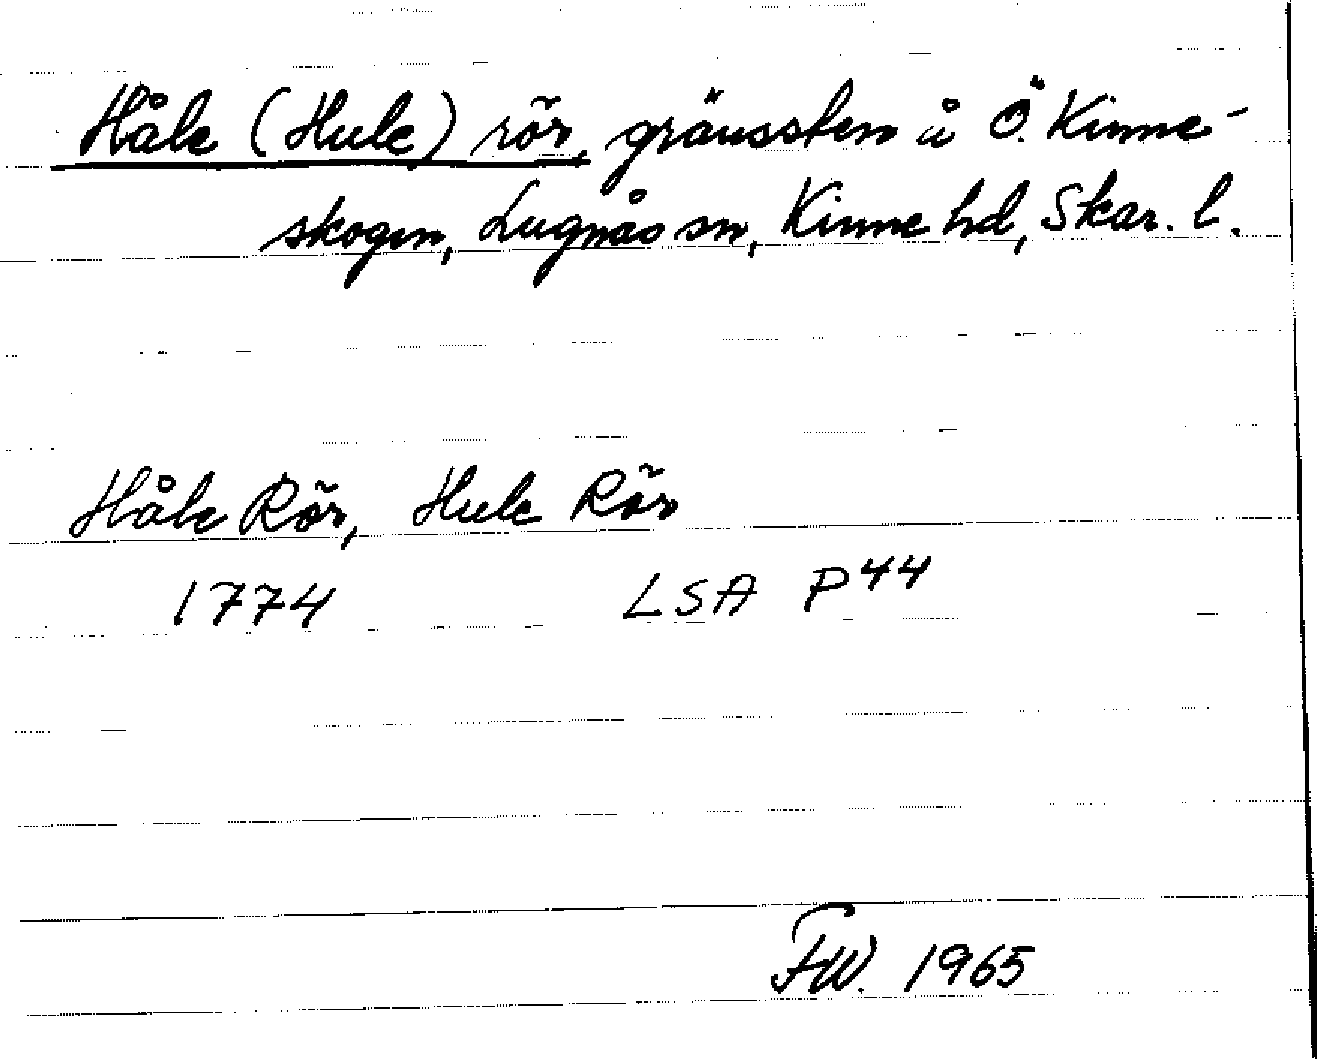 Håle (Hule) rör, gränssten å Ö. Kinne-
skogen, Lugnås sn, Kinne hd, Skar. l.
Håle Rör, Hule Rör
1774 LSA P44
FW. 1965